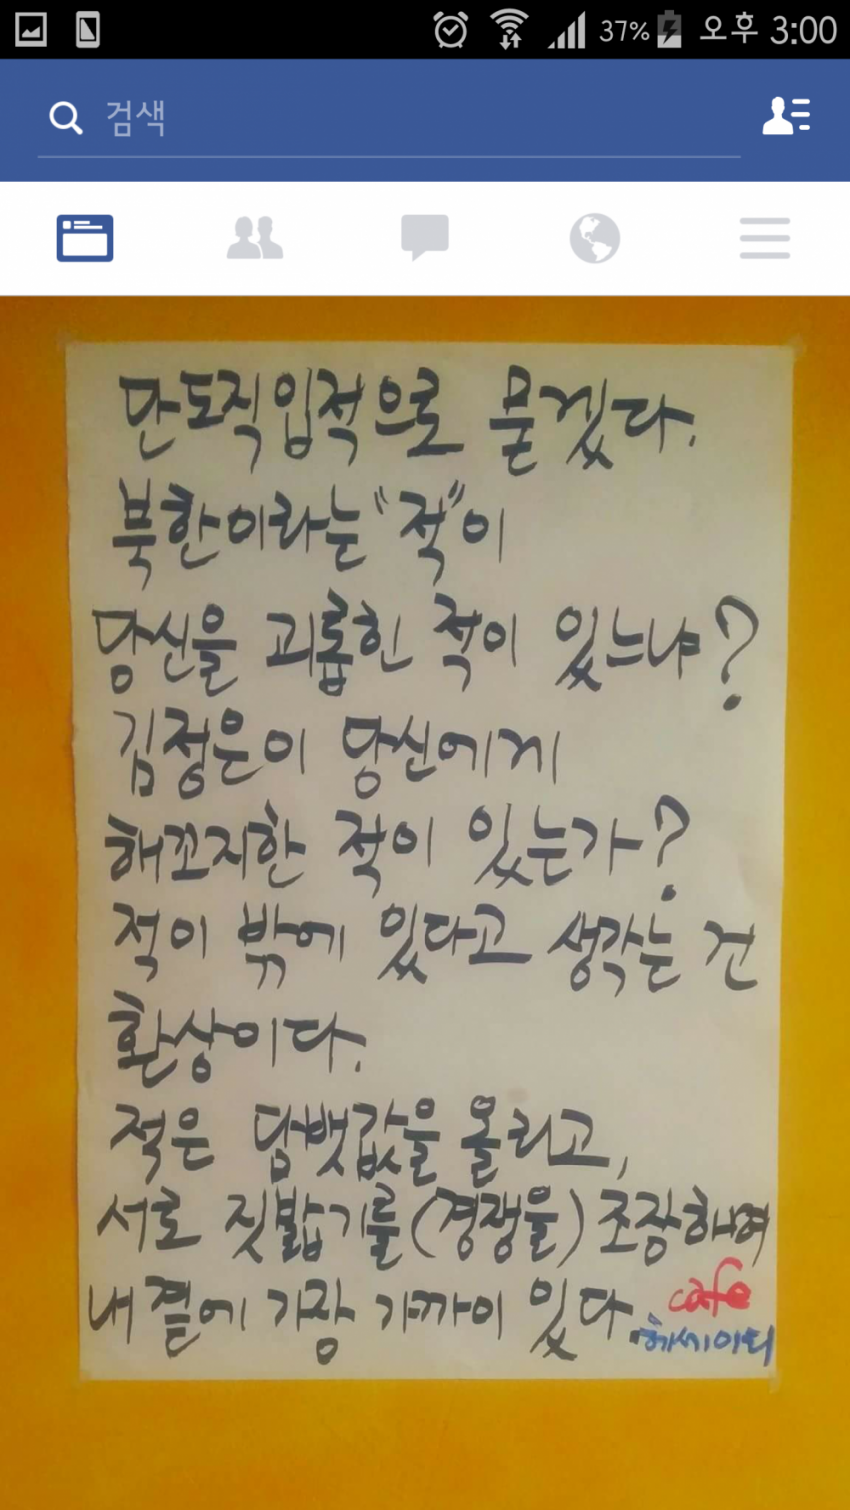 37% 오후 3:00
검색
단도직입적으로 묻겠다.
북한이라는 "적"이
당신을 괴롭힌 적이 있느냐?
김정은이 당신에게
해꼬지한 적이 있는가?
적이 밖에 있다고 생각는 건
환상이다.
적은 담뱃값을 올리고,
서로 짓밟기를(경쟁을) 조장하여
내 곁에 가장 가까이 있다.
cafe
헤세이티